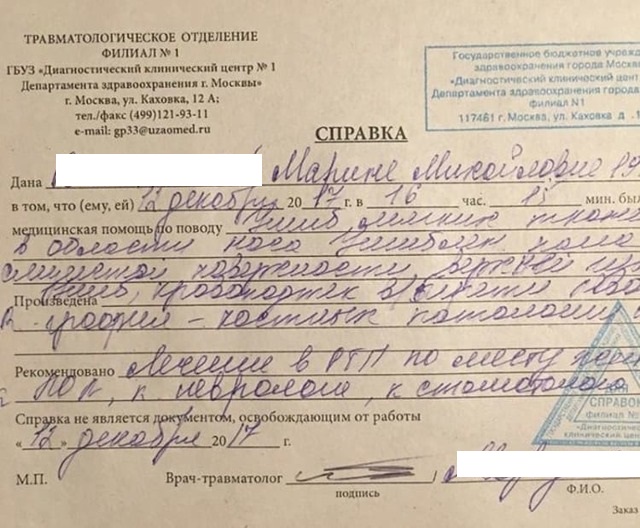 ТРАВМАТОЛОГИЧЕСКОЕ ОТДЕЛЕНИЕ
ФИЛИАЛ № 1
ГБУЗ «Диагностический клинический центр № 1
Департамента здравоохранения г. Москвы»
г. Москва, ул. Каховка, 12 А;
тел./факс (499)121-93-11
e-mail: gp33@uzaomed.ru
Государственное бюджетное учрежд
здравоохранения города Москв
«Диагностический клинический цент
Департамента здравоохранения города
филиал №1
117461 г. Москва, ул. Каховка д.
СПРАВКА
Дана Марине Михайловне
в том, что (ему, ей) 12 декабря 2017 г. в 16 час. 15 мин. был
медицинская помощь по поводу Ушиб мягких ткан
в области носа Ушибленная рана
слизистой поверхности верхней
Ушиб, кровоподтек области
Произведена
графия - костных патологии
Рекомендовано Лечение в РТП по месту
ЛОР, к неврологу, к стоматологу
Справка не является документом, освобождающим от работы
« 12 » декабря 2017 г.
СПРАВОК
Филиал №
«Диагностичес
клинический цент
М.П. Врач-травматолог
подпись Ф.И.О.
Заказ